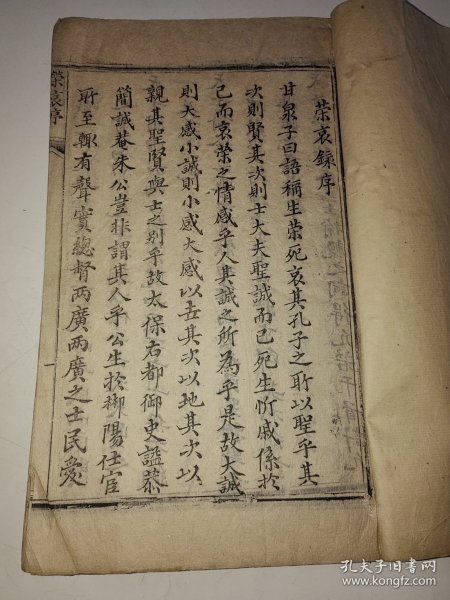 榮哀録序
甘泉子曰語稱生榮死哀其孔子之所以聖乎其
次則賢其次則士大夫聖誠而已死生忻戚係於
己而哀榮之情感乎人其誠之所為乎是故大誠
則大感小誠則小感大感以去其次以地其次以
親其聖賢與士之别乎故太保右都御史謚恭
簡誠菴朱公豈非謂其人乎公生於郴陽仕宦
所至輙有聲實總督兩廣兩廣之士民愛
榮哀序
一
孔夫子旧书网
www.kongfz.com